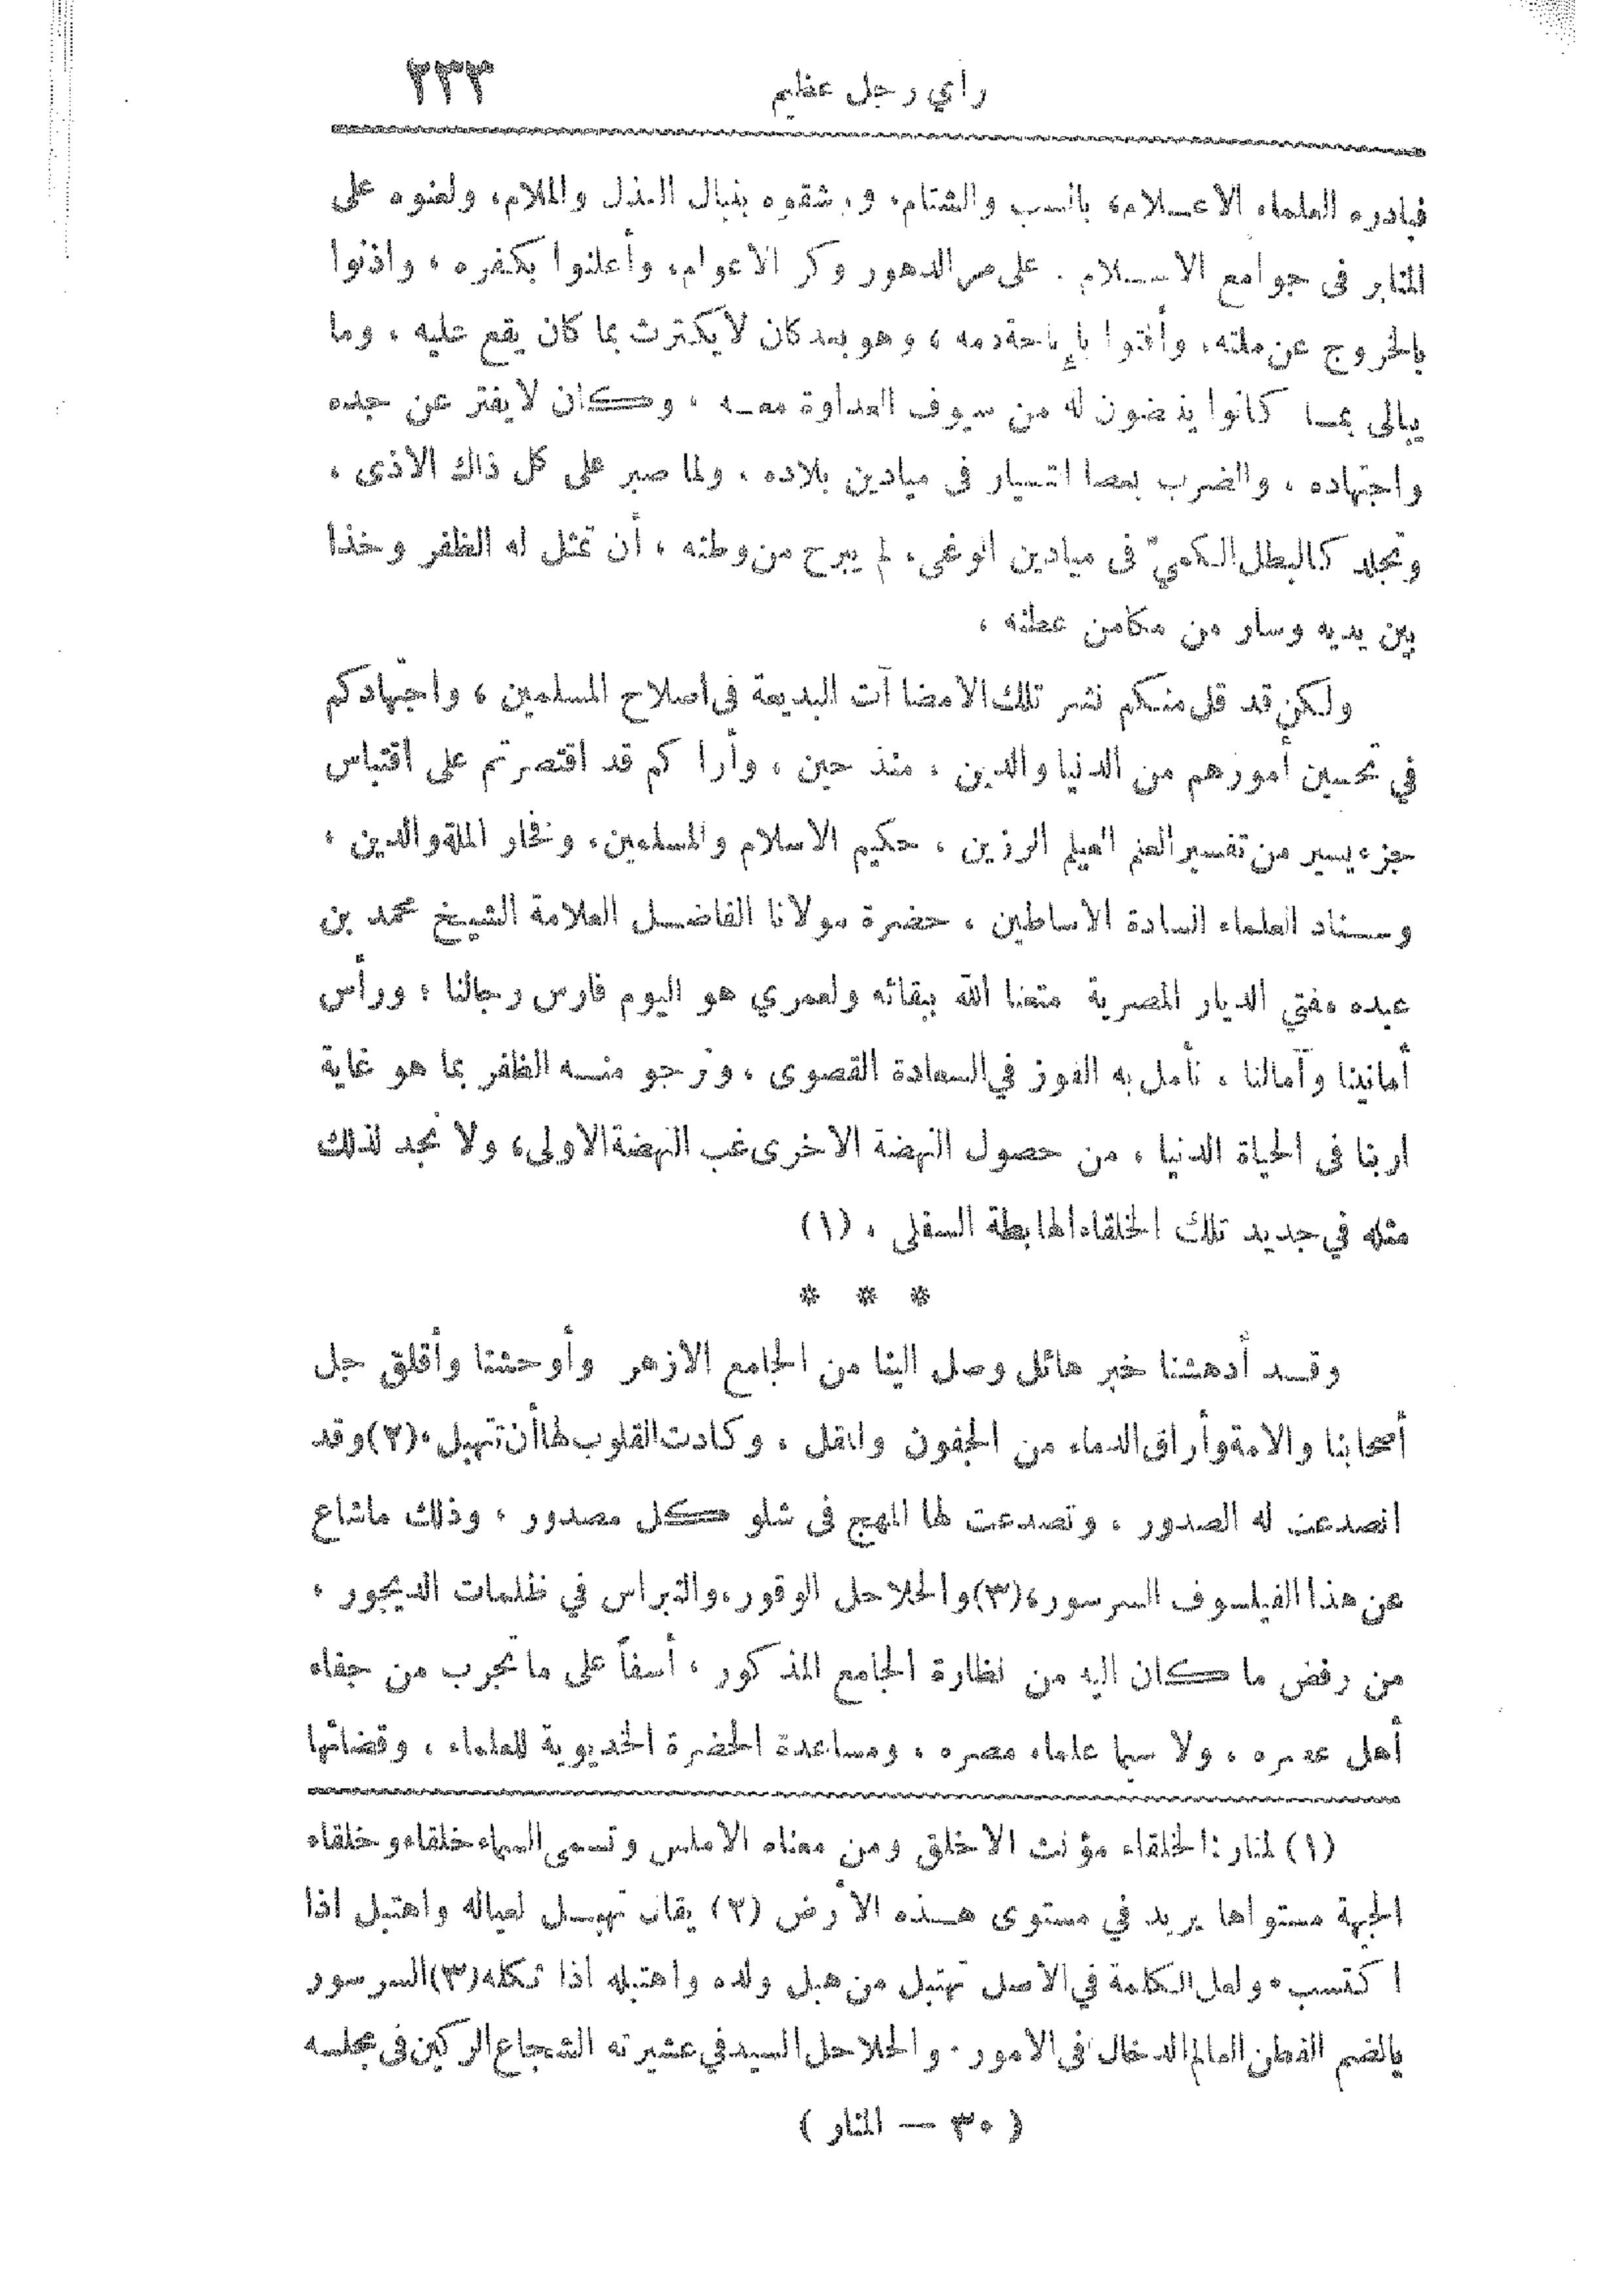 رأي رجل عظيم ٢٣٣
فبادره العلماء الاعــلام، بالسب والشتام، ورشقوه بنبال العذل والملام، ولعنوه على
المنابر في جوامع الاســلام . على مر الدهور وكر الاعوام، وأعلنوا بكفره ، واذنوا
بالخروج عن ملته، وأفتوا بإباحة دمه ، وهو بعد كان لا يكترث بما كان يقع عليه ، وما
يبالى بمـا كانوا ينضون له من سيوف العداوة معـه ، وكان لا يفتر عن جده
واجتهاده ، والضرب بعصا التسيار في ميادين بلاده ، ولما صبر على كل ذاك الاذى ،
وتجلد كالبطل الكميّ في ميادين الوغى، لم يبرح من وطنه ، أن تمثل له الظفر وخذا
بين يديه وسار من مكامن عطنه ،
ولكن قد قل منكم نشر تلك الامضاآت البديعة في اصلاح المسلمين ، واجتهادكم
في تحسين أمورهم من الدنيا والدين ، منذ حين ، وأراكم قد اقتصرتم على اقتباس
جزء يسير من تفسير العلم العيلم الرزين ، حكيم الاسلام والمسلمين، وفخار الملة والدين ،
وســناد العلماء السادة الاساطين ، حضرة مولانا الفاضــل العلامة الشيخ محمد بن
عبده مفتي الديار المصرية متعنا الله ببقائه ولعمري هو اليوم فارس رجالنا ، ورأس
أمانينا وآمالنا ، نأمل به الفوز في السعادة القصوى ، ونرجو منــه الظفر بما هو غاية
اربنا في الحياة الدنيا ، من حصول النهضة الاخرى غب النهضة الاولى، ولا نجد لذلك
مثله في جديد تلك الخلقاء الهابطة السفلى ، (١)
* * *
وقــد أدهشنا خبر هائل وصل الينا من الجامع الازهر وأوحشنا وأقلق جل
أصحابنا والامة وأراق الدماء من الجفون والمقل ، وكادت القلوب لها أن تهبل،(٢)وقد
انصدعت له الصدور ، وتصدعت لها المهج في شلو كل مصدور ، وذلك ماشاع
عن هذا الفيلسوف السرسور،(٣)والحلاحل الوقور،والنبراس في ظلمات الديجور ،
من رفض ما كان اليه من نظارة الجامع المذكور ، أسفاً على ما تجرب من جفاء
أهل عصره ، ولا سيما علماء مصره ، ومساعدة الحضرة الخديوية للعلماء ، وقضائها
(١) لمنار: الخلقاء مؤنث الاخلق ومن معناه الاملس وتسمى السماء خلقاء وخلقاء
الجبهة مستواها يريد في مستوى هــذه الأرض (٢) يقال تهبــل لعياله واهتبل اذا
اكتسب، ولعل الكلمة في الاصل تهتبل من هبل ولده واهتبله اذا ثكله(٣)السرسور
بالضم الفطن العالم الدخال في الامور. والحلاحل السيد في عشيرته الشجاع الركين في مجلسه
( ٣٠ — المنار )